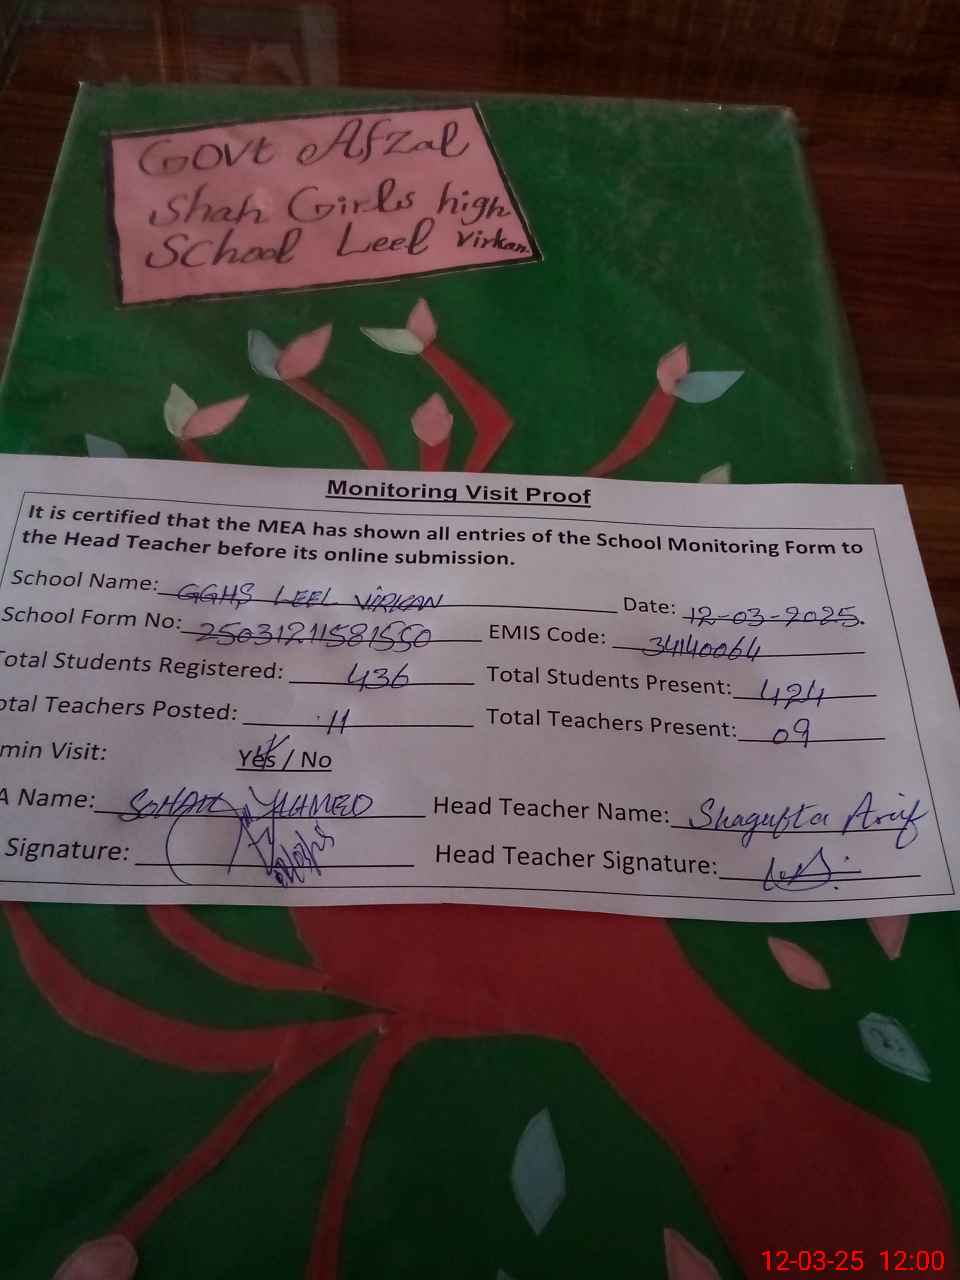 Govt Afzal
Shah Girls high
School Leel Virkan.
Monitoring Visit Proof
It is certified that the MEA has shown all entries of the School Monitoring Form to
the Head Teacher before its online submission.
School Name: GGHS LEEL VIRKAN Date: 12-03-2025.
School Form No: 25031211581550 EMIS Code: 34140064
Total Students Registered: 436 Total Students Present: 424
otal Teachers Posted: 11 Total Teachers Present: 09
min Visit: Yes / No
A Name: SOHAIL AHMED Head Teacher Name: Shagufta Arif
Signature: Head Teacher Signature:
12-03-25 12:00